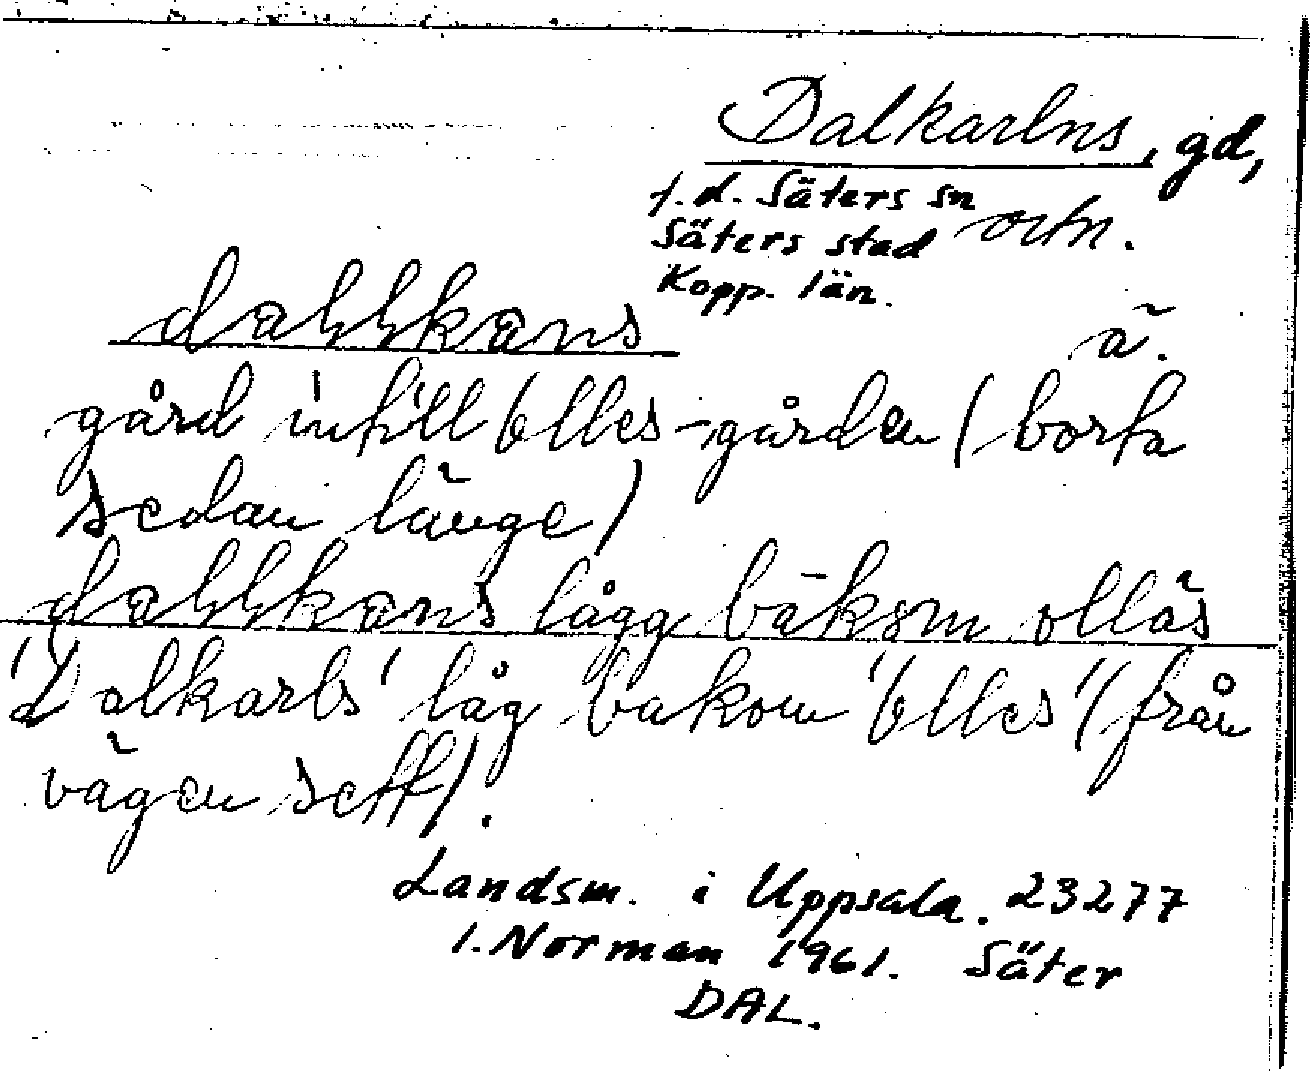 Dalkarlns, gd,
f.d. Säters sn
Säters stad ortn.
Kopp. län.
ä.
gård intill Olles-gården (borta
sedan länge)
lågg bakom
'Dalkarls' låg bakom 'Olles' (från
vägen sett).
Landsm. i Uppsala. 23277
I. Norman 1961. Säter
DAL.